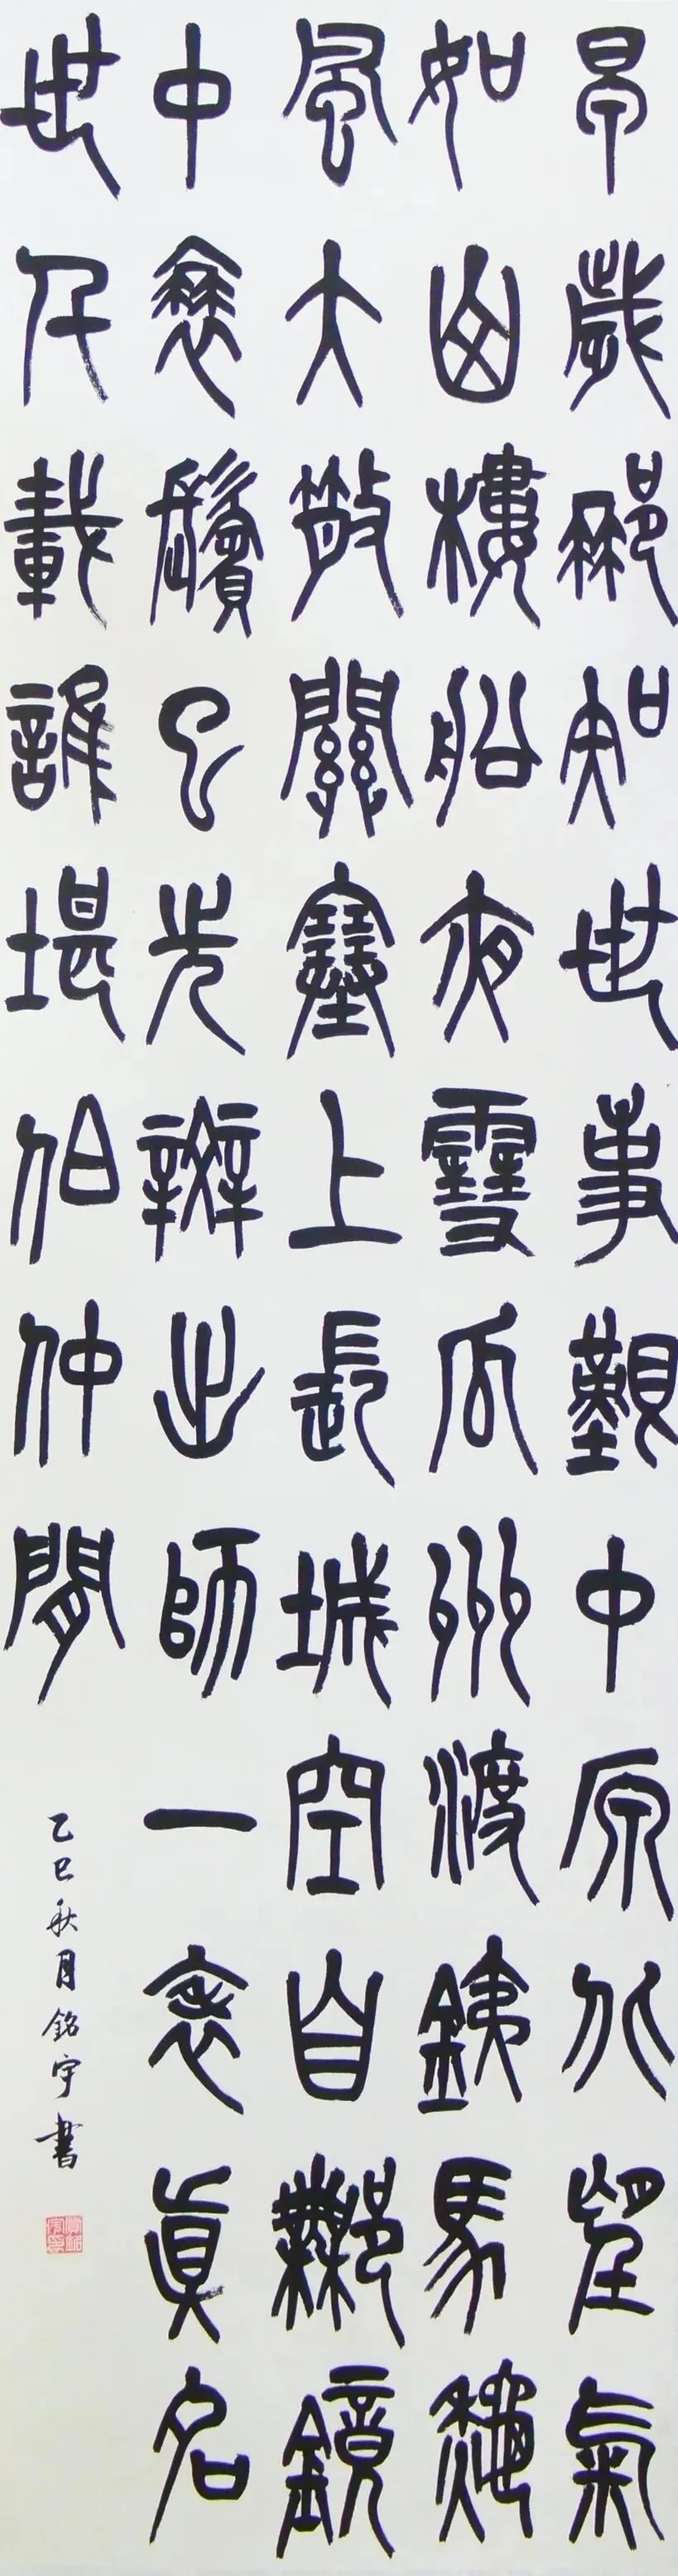 早歲那知世事艱中原北望氣
如山樓船夜雪瓜洲渡鐵馬秋
風大散關塞上長城空自許鏡
中衰鬢已先斑出師一表真名
世千載誰堪伯仲間
乙巳秋月銘宇書